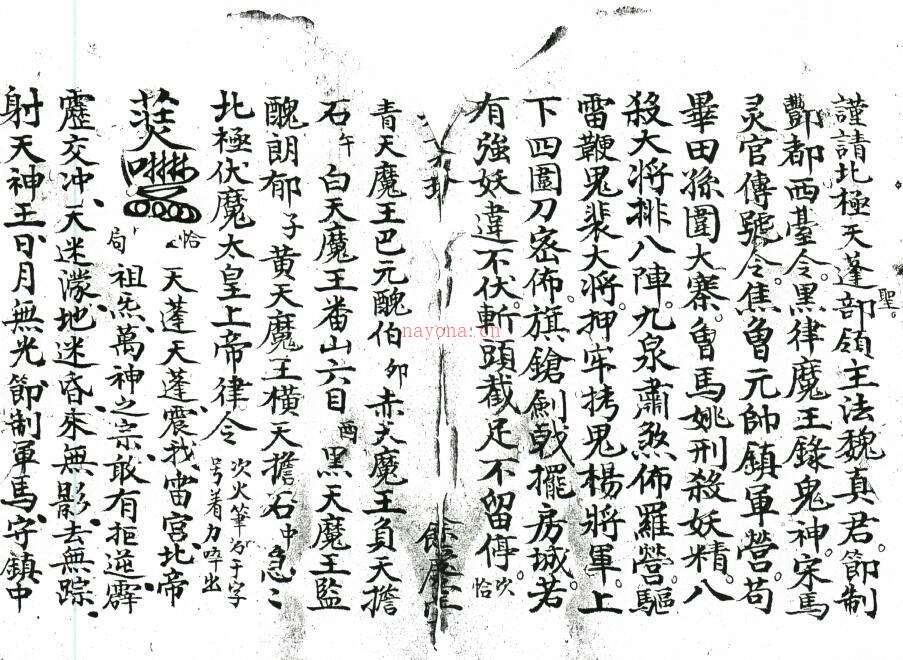 謹請北極天蓬部領主法魏真君節制
聖
酆都西臺令黑律魔王錄鬼神宋馬
灵官傳號令焦魯元帥鎮軍營苟
畢田孫圍大寨魯馬姚刑殺妖精八
殺大將排八陣九泉肅煞佈羅營驅
雷鞭鬼裴大將押牢拷鬼楊將軍上
下四圍刀密佈旗鎗劍戟擺房城若
有強妖違不伏斬頭截足不留停次恰
青天魔王巴元醜伯卯赤天魔王負天擔
石午白天魔王畨山六目酉黑天魔王監
醜朗郁子黃天魔王橫天擔石中急〻
北極伏魔太皇上帝律令次火筆
号着力啐出
恰天蓬天蓬震我雷宮北帝
局祖炁萬神之宗敢有拒逆霹
靂交冲天迷濛地迷昏來無影去無踪
射天神王日月無光節制軍馬守鎮中
nayona.cn